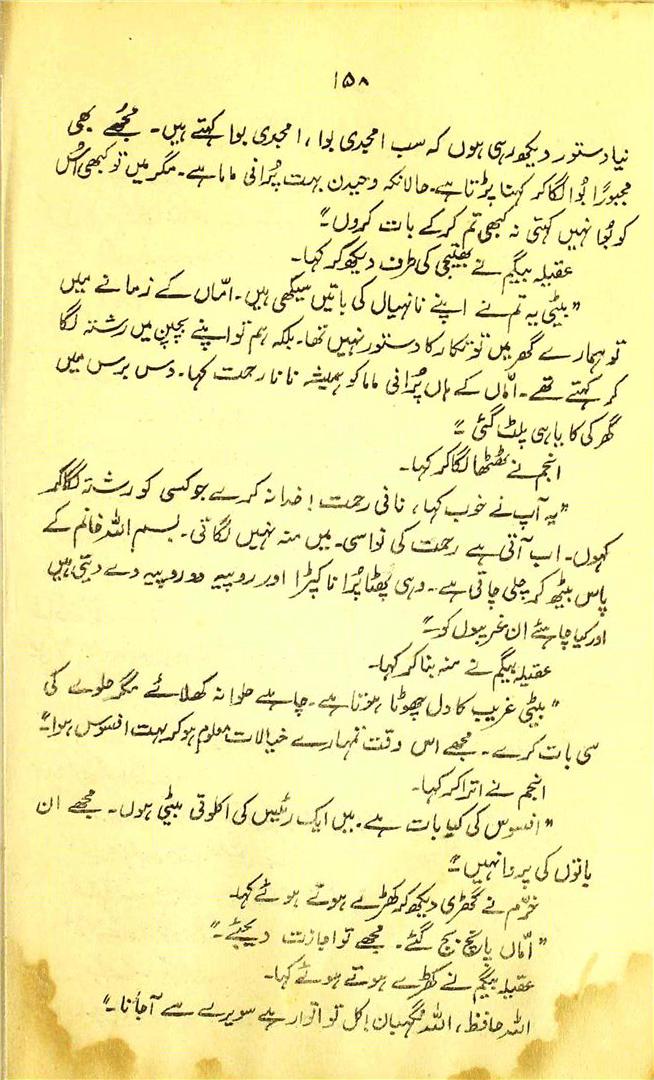 ۱۵۸
نیا دستور دیکھ رہی ہوں کہ سب امجدی بوا، امجدی بوا کہتے ہیں۔ مجھے بھی
مجبوراً بُوا لگا کر کہنا پڑتا ہے۔ حالانکہ وحیدن بہت پُرانی ماما ہے۔ مگر میں تو کبھی اُس
کو بُوا نہیں کہتی نہ کبھی تم کر کے بات کروں۔"
عقیلہ بیگم نے بھتیجی کی طرف دیکھ کر کہا۔
"بیٹی یہ تم نے اپنے نانہیال کی باتیں سیکھی ہیں۔ امّاں کے زمانے میں
تو ہمارے گھر میں تو تکار کا دستور نہیں تھا۔ بلکہ ہم تو اپنے بچپن میں رشتہ لگا
کر کہتے تھے۔ امّاں کے ہاں پُرانی ماما کو ہمیشہ نانا رحمت کہا۔ دس برس میں
گھر کی کایا ہی پلٹ گئی۔"
انجم نے ٹھٹھا لگا کر کہا۔
"یہ آپ نے خوب کہا، نانی رحمت! خدا نہ کرے جو کسی کو رشتہ لگا کر
کہوں۔ اب آتی ہے رحمت کی نواسی۔ میں منہ نہیں لگاتی۔ بسم اللہ خانم کے
پاس بیٹھ کر چلی جاتی ہے۔ وہی پھٹا پُرانا کپڑا اور روپیہ دو روپیہ دے دیتی ہیں
اور کیا چاہئے ان غریبوں کو۔"
عقیلہ بیگم نے منہ بنا کر کہا۔
"بیٹی غریب کا دل چھوٹا ہوتا ہے۔ چاہے حلوا نہ کھلائے مگر حلوے کی
سی بات کرے۔ مجھے اس وقت تمہارے خیالات معلوم ہو کر بہت افسوس ہوا۔"
انجم نے اترا کر کہا۔
"افسوس کی کیا بات ہے۔ میں ایک رئیس کی اکلوتی بیٹی ہوں۔ مجھے ان
باتوں کی پروا نہیں۔"
خرّم نے گھڑی دیکھ کر کھڑے ہوتے ہوئے کہا۔
"امّاں پانچ بج گئے۔ مجھے تو اجازت دیجئے۔"
عقیلہ بیگم نے کھڑے ہوتے ہوئے کہا۔
اللہ حافظ، اللہ نگہبان! کل تو اتوار ہے سویرے سے آجانا۔"